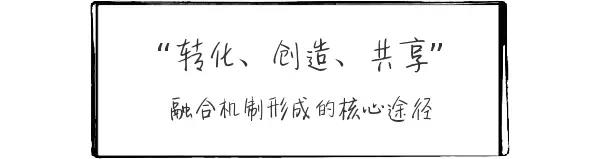 “转化、创造、共享”
融合机制形成的核心途径